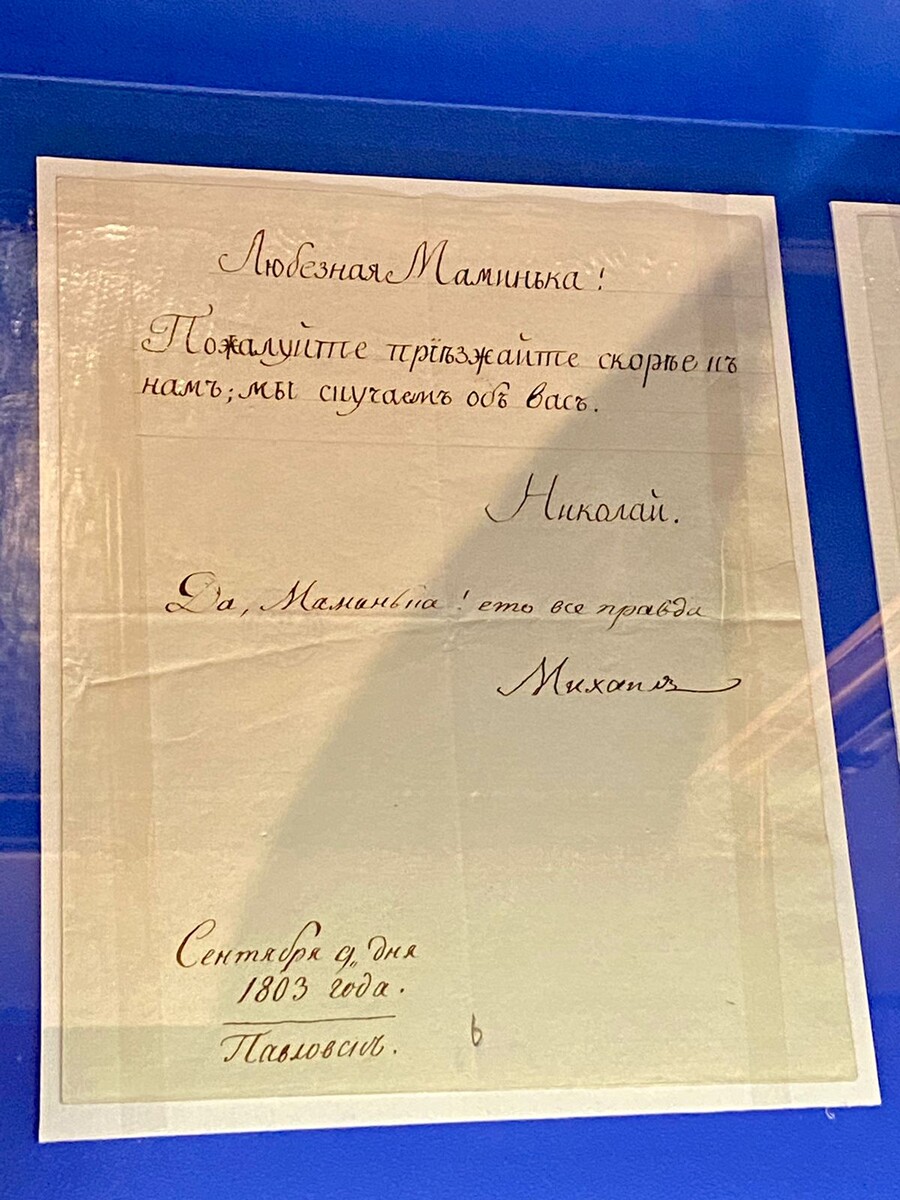 Любезная Маминька!
Пожалуйте пріѣзжайте скорѣе къ
намъ; мы скучаемъ объ васъ.
Николай.
Да, Маминька! ето все правда
Михаилъ
Сентября 9,, дня
1803 года.
Павловскъ.
6